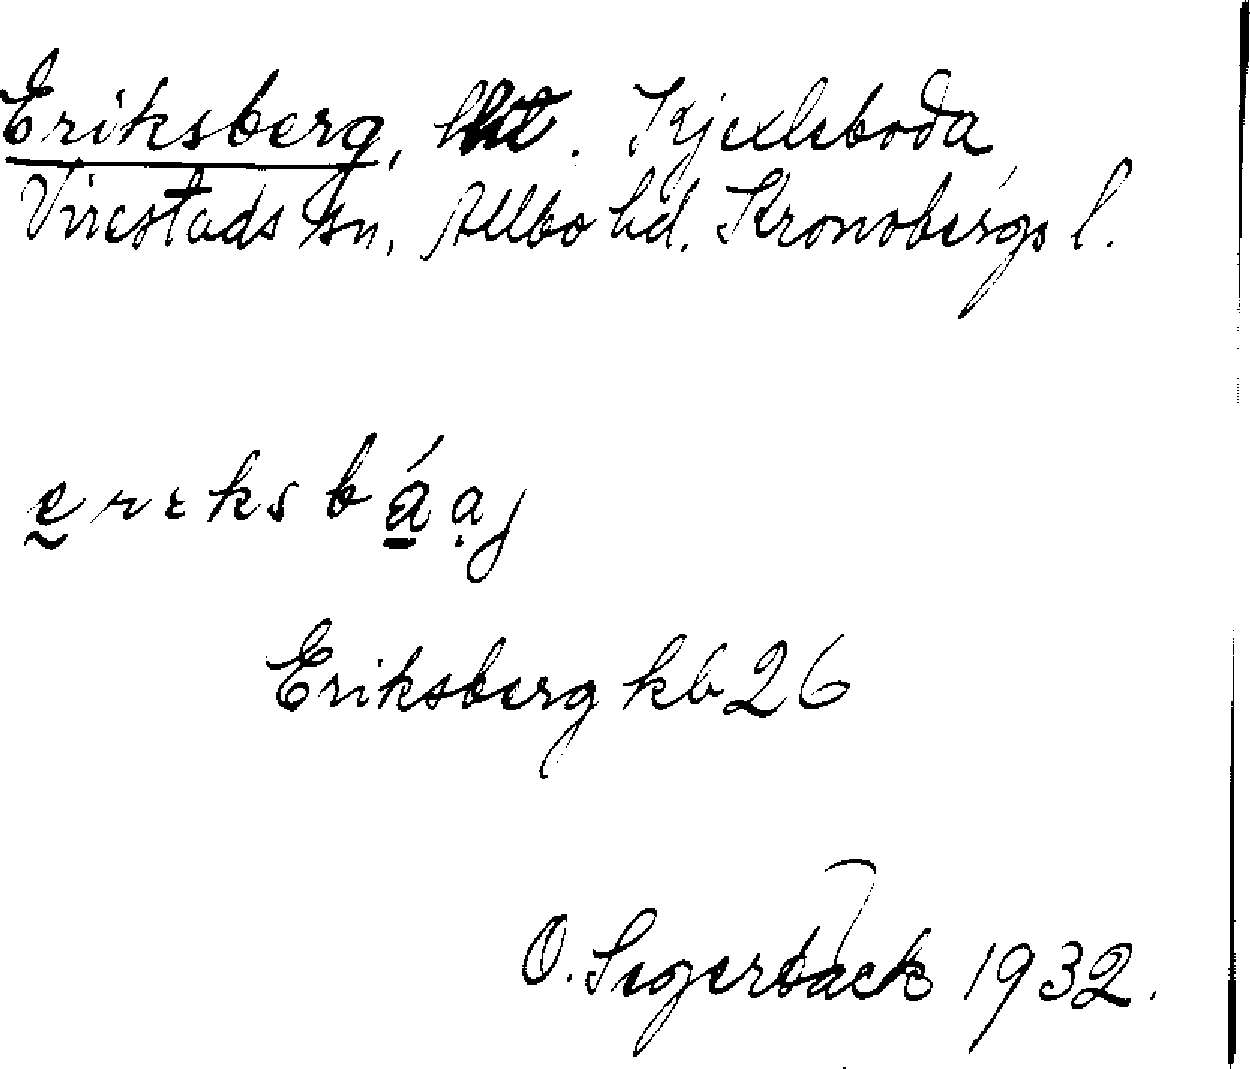 Eriksberg, lht. Kjexleboda
Virestads sn, Allbo hd. Kronobergs l.
ereksbáaj
Eriksberg kb 26
O. Segerbäck 1932.